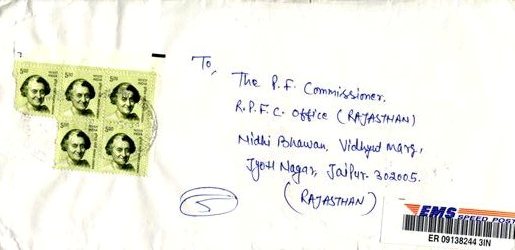 To,
The P.F. Commissioner.
R.P.F.C. Office (RAJASTHAN)
Nidhi Bhawan, Vidhyut Marg,
Jyoti Nagar, Jaipur-302005.
(RAJASTHAN)
5
5.00
5.00
5.00
5.00
5.00
EMS SPEED POST
ER 09138244 3IN